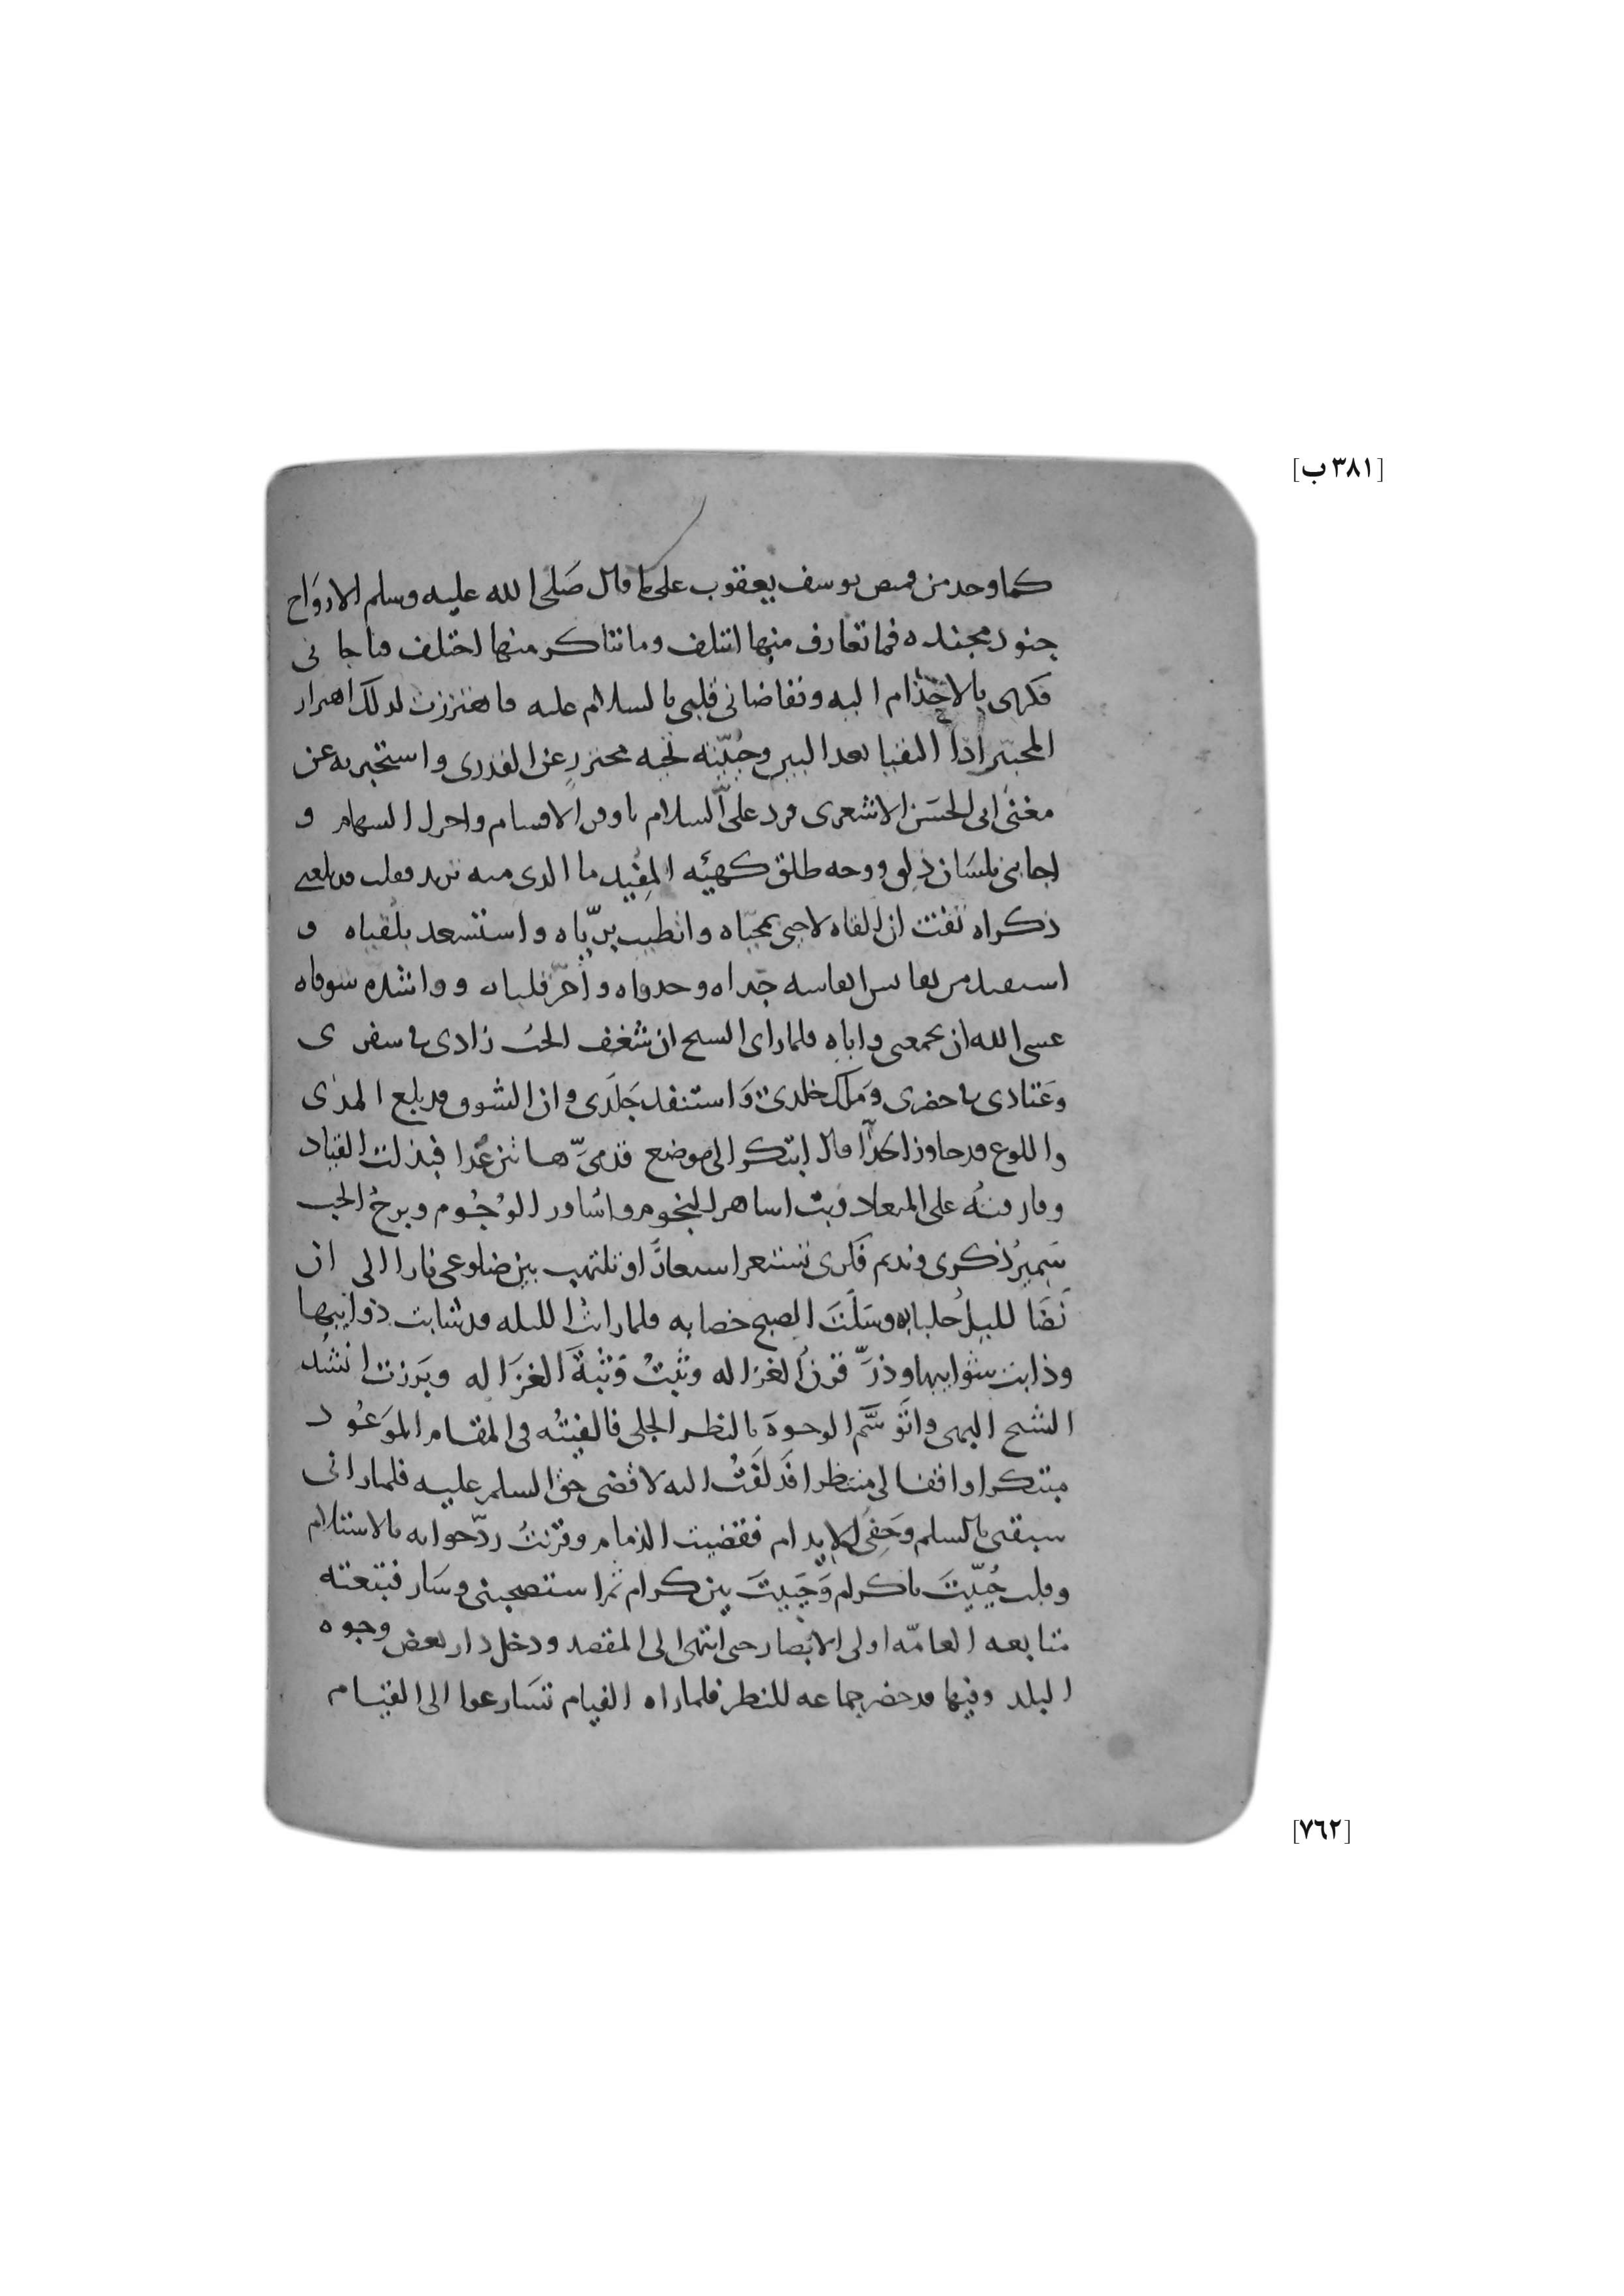 [٣٨١ ب]
كما وجد من قميص يوسف يعقوب على ما قال صَلى الله عليه وسلم الارواح
جنود مجنده فما تعارف منها ائتلف وما تناكر منها اختلف فناجانى
فكرى بالاقدام اليه وتقاضانى قلبى بالسلام عليه فاهتززت لذلك اهتزاز
المحبين اذا التقيا بعد البين وحُيّيته تحيه محترز عن القدرى واستخبرته عن
مغنى ابى الحسَن الاشعرى فرد علىّ السلام باوفر الاقسام واجزل السهام و
اجابنى بلسَان ذلق ووجه طلق كهيئه المُفيد ما الذى منه تريد فقلت قد بلغنى
ذكراه تقت ان القاه لاحيى بمحيّاه واتطيب بريّاه واستسعد بلقياه و
استفيد من نفايس انفاسه جداه وجدواه وا حرّ قلباه ووا شده شوقاه
عسى الله ان يجمعنى واياه فلما راى الشيخ ان شُغف الحب زادى فى سفرى
وعَتادى فى حضرى ومَلك خلدى وَاستنفد جَلَدى وان الشوق قد بلغ المدى
واللوع قد جاوز الحدّا قال ابتكر الى موضع قدمىّ هاتين غدا فبذلت القياد
وفارقته على الميعاد وبت اساهر النجوم واساور الوُجُوم وبرح الحب
سَميرُ ذكرى ونديم فكرى تستعر استعارًا وتلتهب بين ضلوعى نارا الى ان
نَضَا الليلُ جلبابه وسَلَتَ الصبح خضابه فلما رايتُ الليله قد شابت ذوايبها
وذابت شوايبها وذرّ قرنُ الغزاله وثبتُ وَثبةَ الغزَاله وبَرزت انشُد
الشيخ البهى واتوَسَّم الوجوهَ بالنظر الجلى فالفيتُه فى المقام الموَعُود
مبتكرا واقفا لى منتظرا فدَلَفَتُ اليه لاقضى حق السلم عليه فلما رانى
سبقنى بالسلم وحَفِىَ الاقدام فقضيت الذمام وقرنتُ ردّ جوابه بالاستلام
وقلت حُيّيتَ باكرام وَحَييتَ بين كرام ثم استصحبنى وسَار فتبعته
متابعه العامّه اولى الابصار حتى انتهى الى المقصد ودخل دار بعض وجوه
البلد وفيها قد حضر جماعه للنظر فلما راه القيام تسَارعوا الى القيام
[٧٦٢]